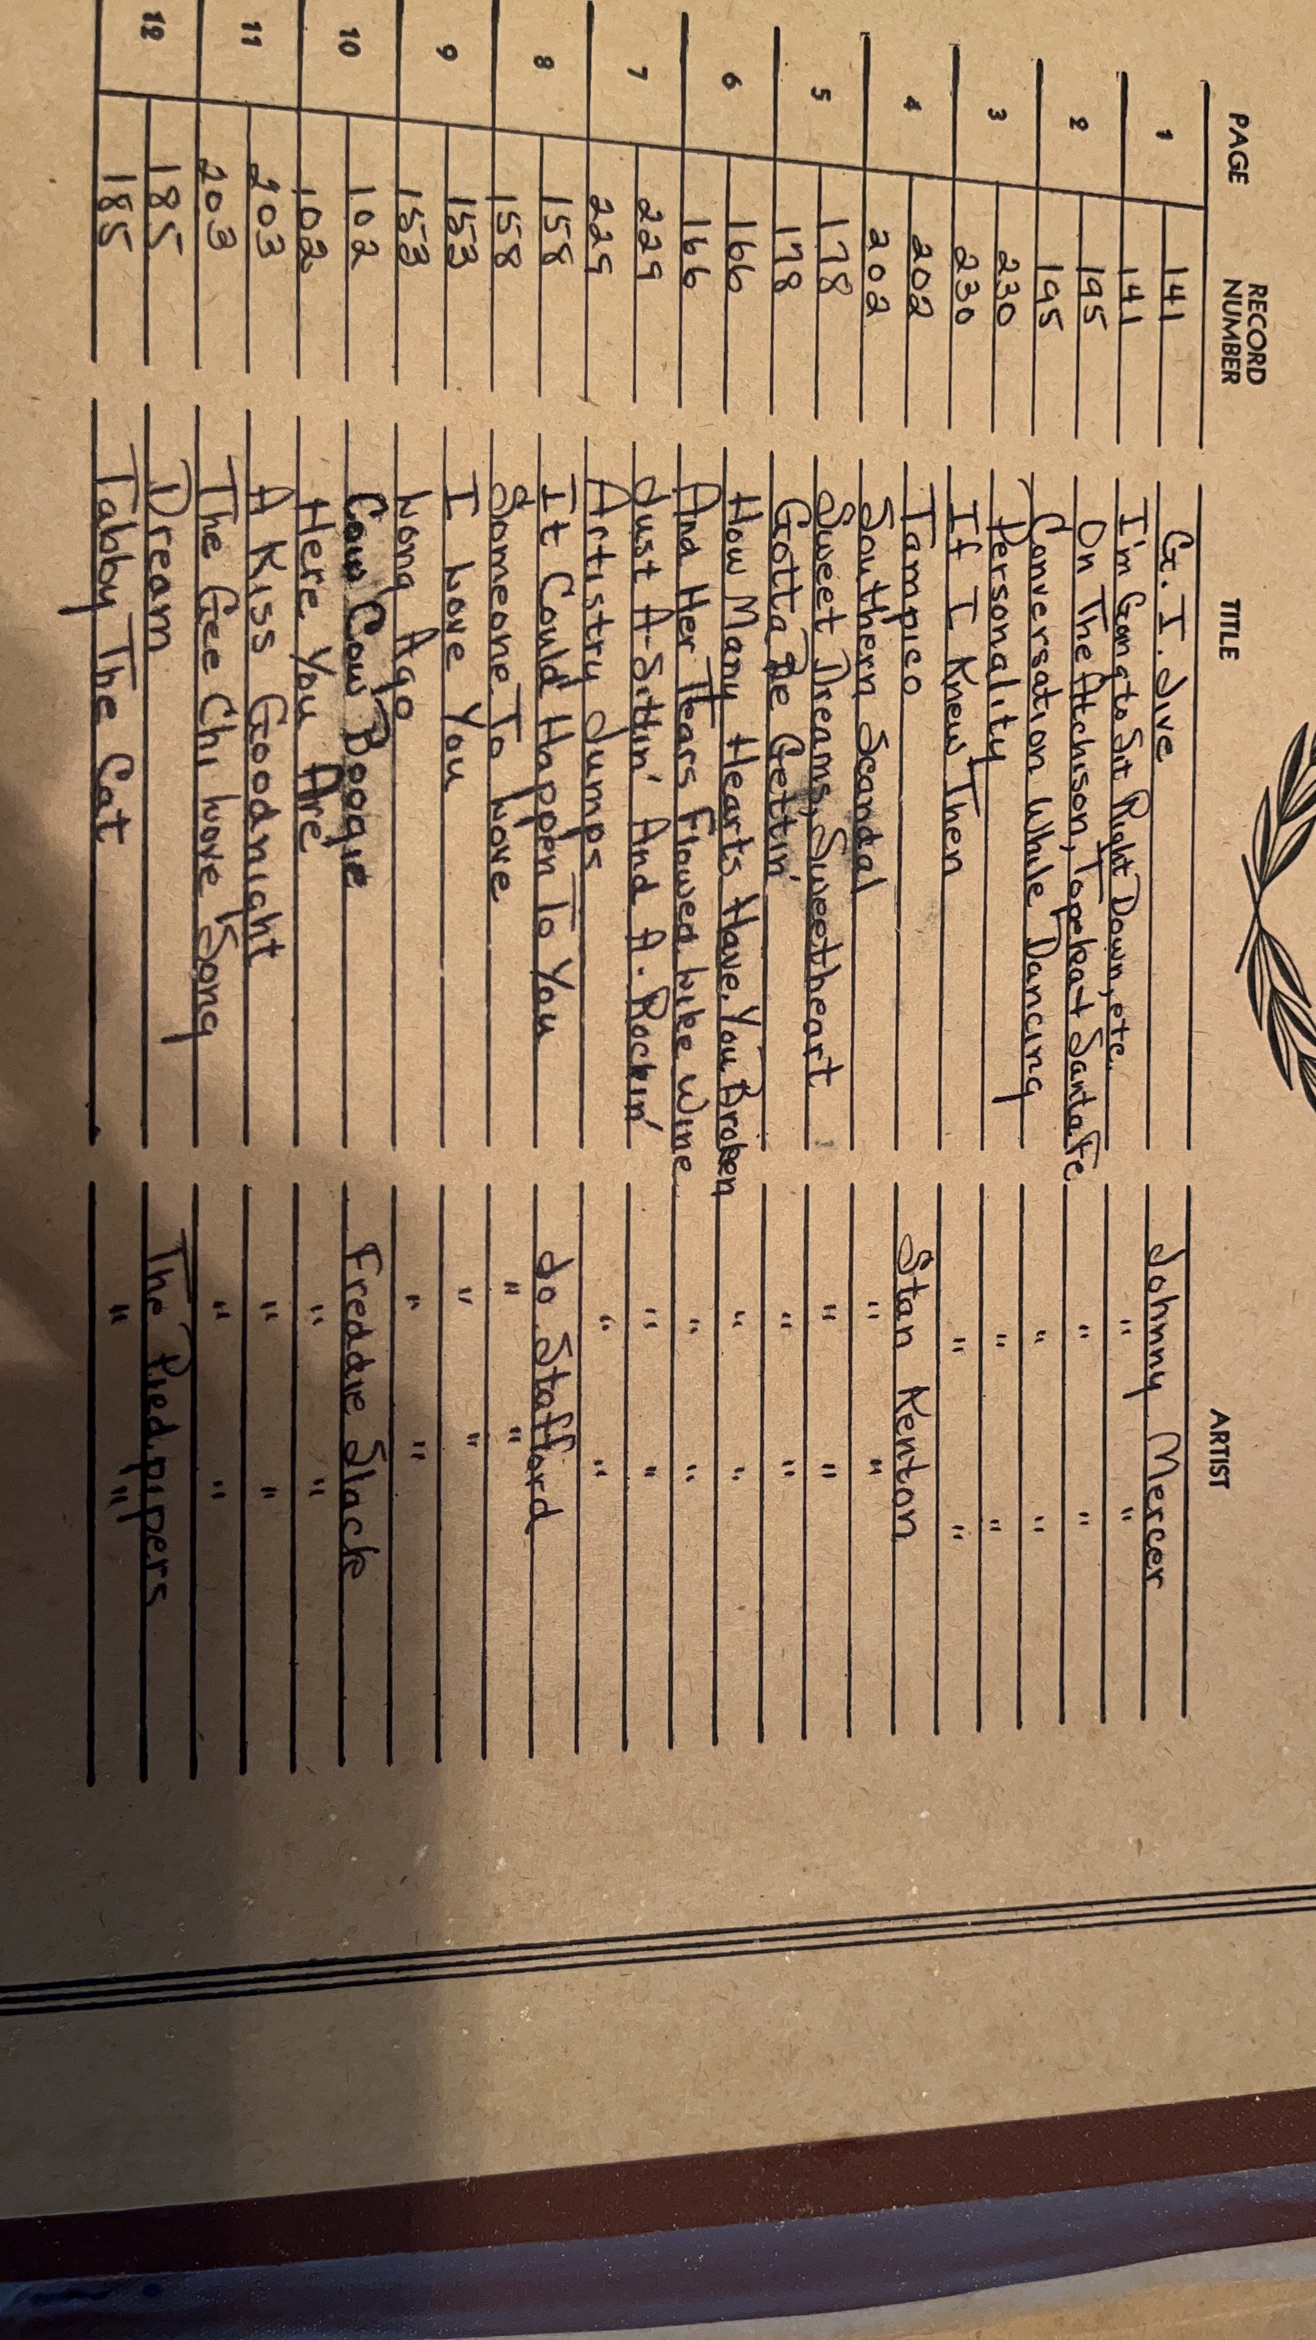 PAGE RECORD NUMBER TITLE ARTIST
1 141 G. I. Jive Johnny Mercer
141 I'm Gong to Sit Right Down, etc. " "
2 195 On The Atchison, Topeka + Santa Fe " "
195 Conversation While Dancing " "
3 230 Personality " "
230 If I Knew Then " "
4 202 Tampico Stan Kenton
202 Southern Scandal " "
5 178 Sweet Dreams, Sweetheart " "
178 Gotta Be Gettin' " "
6 166 How Many Hearts Have You Broken " "
166 And Her Tears Flowed Like Wine " "
7 229 Just A-Sittin' And A-Rockin' " "
229 Artistry Jumps " "
8 158 It Could Happen To You Jo Stafford
158 Someone To Love " "
9 153 I Love You " "
153 Long Ago " "
10 102 Cow Cow Boogie Freddie Slack
102 Here You Are " "
11 203 A Kiss Goodnight " "
203 The Gee Chi Love Song " "
12 185 Dream The Pied pipers
185 Tabby The Cat " "